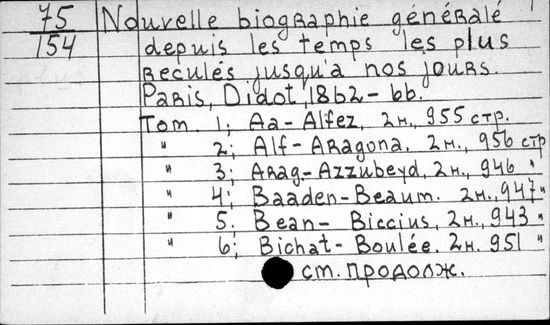 75 Nouvelle biographie générale
154 depuis les temps les plus
reculés jusqu'a nos jours.
Paris, Didot, 1862-66.
Tom. 1; Aa - Alfez, 2н., 955 стр.
" 2; Alf - Aragona, 2н., 956 стр
" 3; Arag - Azzubeyd, 2н., 946 "
" 4; Baaden - Beaum. 2н., 947 "
" 5; Bean - Biccius, 2н., 943 "
" 6; Bichat - Boulée. 2н. 951 "
см. продолж.